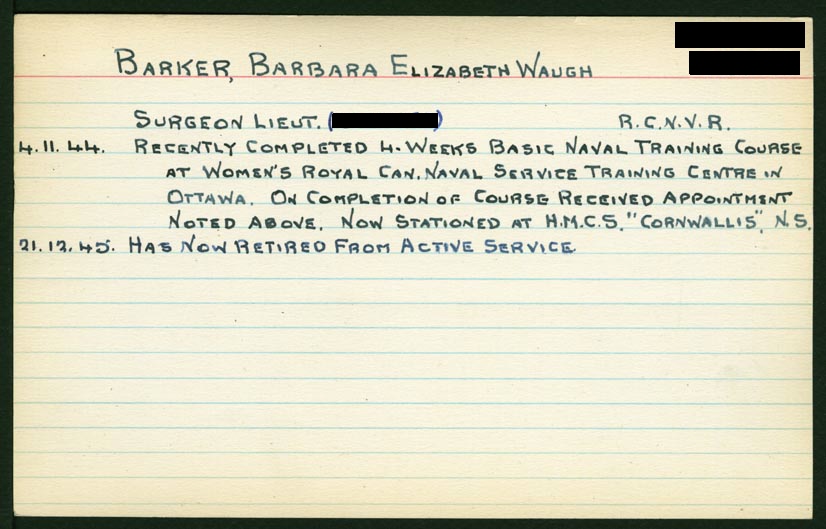 BARKER, BARBARA ELIZABETH WAUGH
SURGEON LIEUT. ( ) R.C.N.V.R.
4.11.44. RECENTLY COMPLETED 4-WEEKS BASIC NAVAL TRAINING COURSE
AT WOMEN'S ROYAL CAN. NAVAL SERVICE TRAINING CENTRE IN
OTTAWA. ON COMPLETION OF COURSE RECEIVED APPOINTMENT
NOTED ABOVE. NOW STATIONED AT H.M.C.S. "CORNWALLIS", N.S.
21.12.45. HAS NOW RETIRED FROM ACTIVE SERVICE